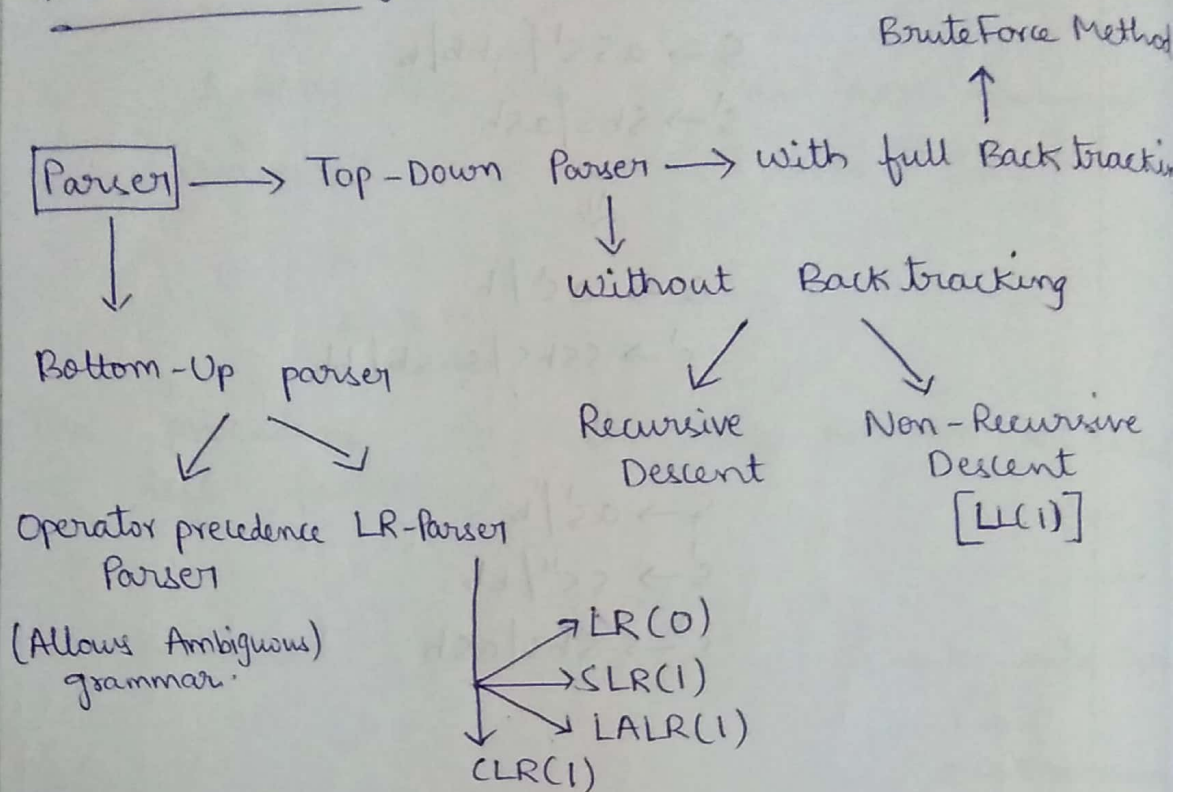 Brute Force Method
Parser → Top-Down Parser → With full Back
Without Back tracking
Bottom-Up parser
Recursive
Descent
Non-Recursive
Descent
[LL(1)]
Operator precedence
Parser
LR-Parser
(Allows Ambiguous)
grammar.
LR(0)
SLR(1)
LALR(1)
CLR(1)